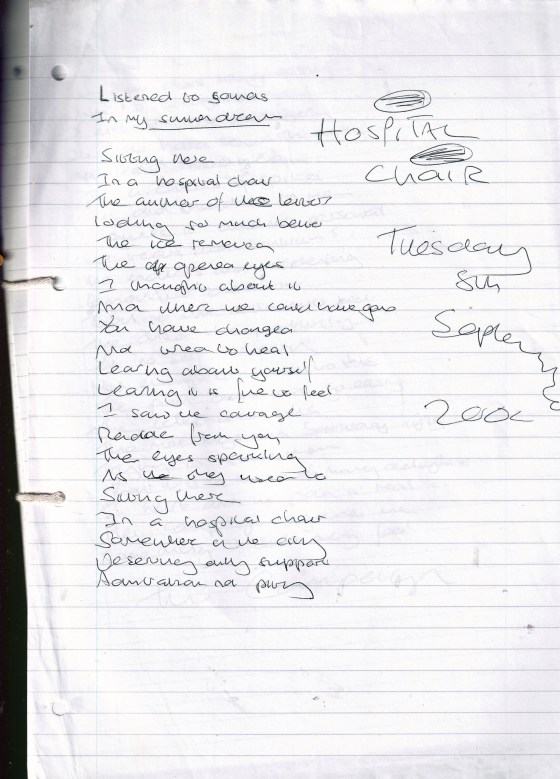 Listened to sounds
In my summer dream
HOSPITAL
CHAIR
Sitting here
In a hospital chair
The author of the letters
Looking so much better
The ice removed
The opened eyes
I thought about it
And where we could have gone
You have changed
And tried to heal
Learning about yourself
Learning it is fine to feel
I saw the courage
Radiate from you
The eyes sparkling
As they used to
Sitting there
In a hospital chair
Somewhere in the city
Deserving only support
Admiration not pity
Tuesday
8th
Septem